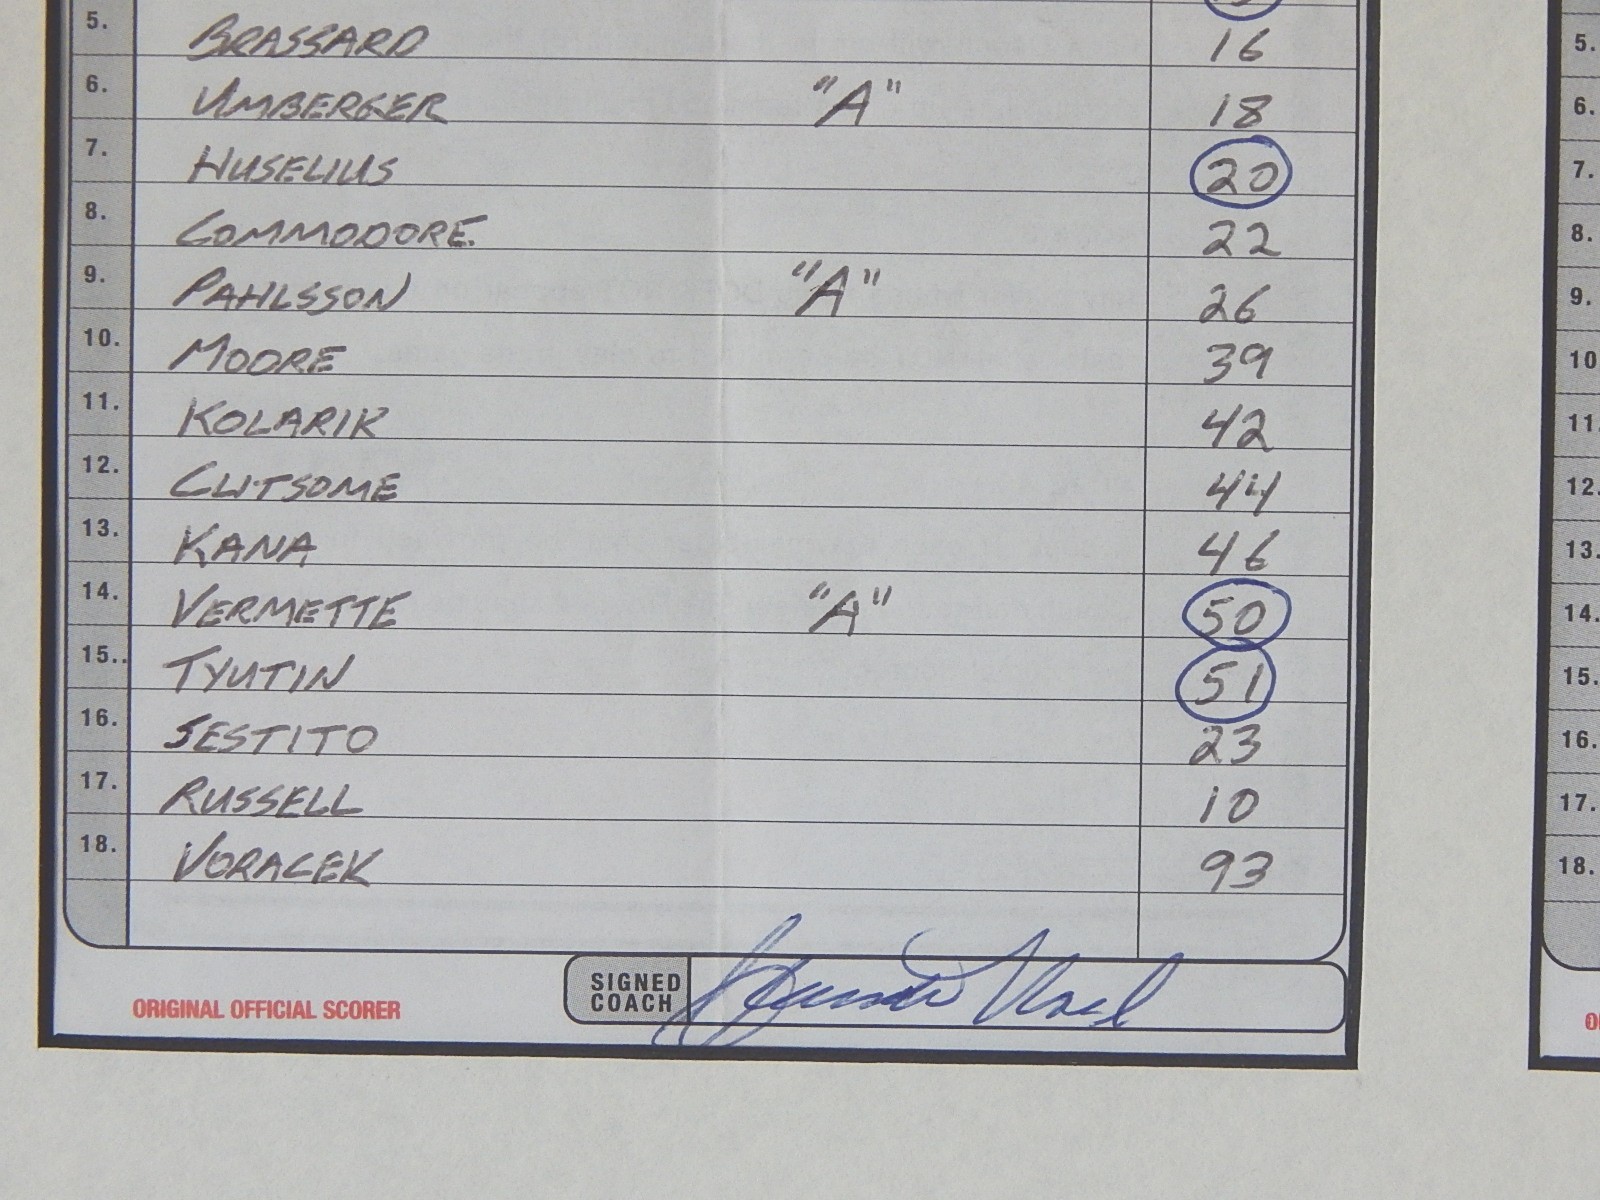 5. BRASSARD 16
6. UMBERGER "A" 18
7. HUSELIUS 20
8. COMMODORE 22
9. PAHLSSON "A" 26
10. MOORE 39
11. KOLARIK 42
12. CLITSOME 44
13. KANA 46
14. VERMETTE "A" 50
15.. TYUTIN 51
16. SESTITO 23
17. RUSSELL 10
18. VORACEK 93
SIGNED
COACH
ORIGINAL OFFICIAL SCORER
5.
6.
7.
8.
9.
10
11.
12.
13.
14.
15.
16.
17.
18.